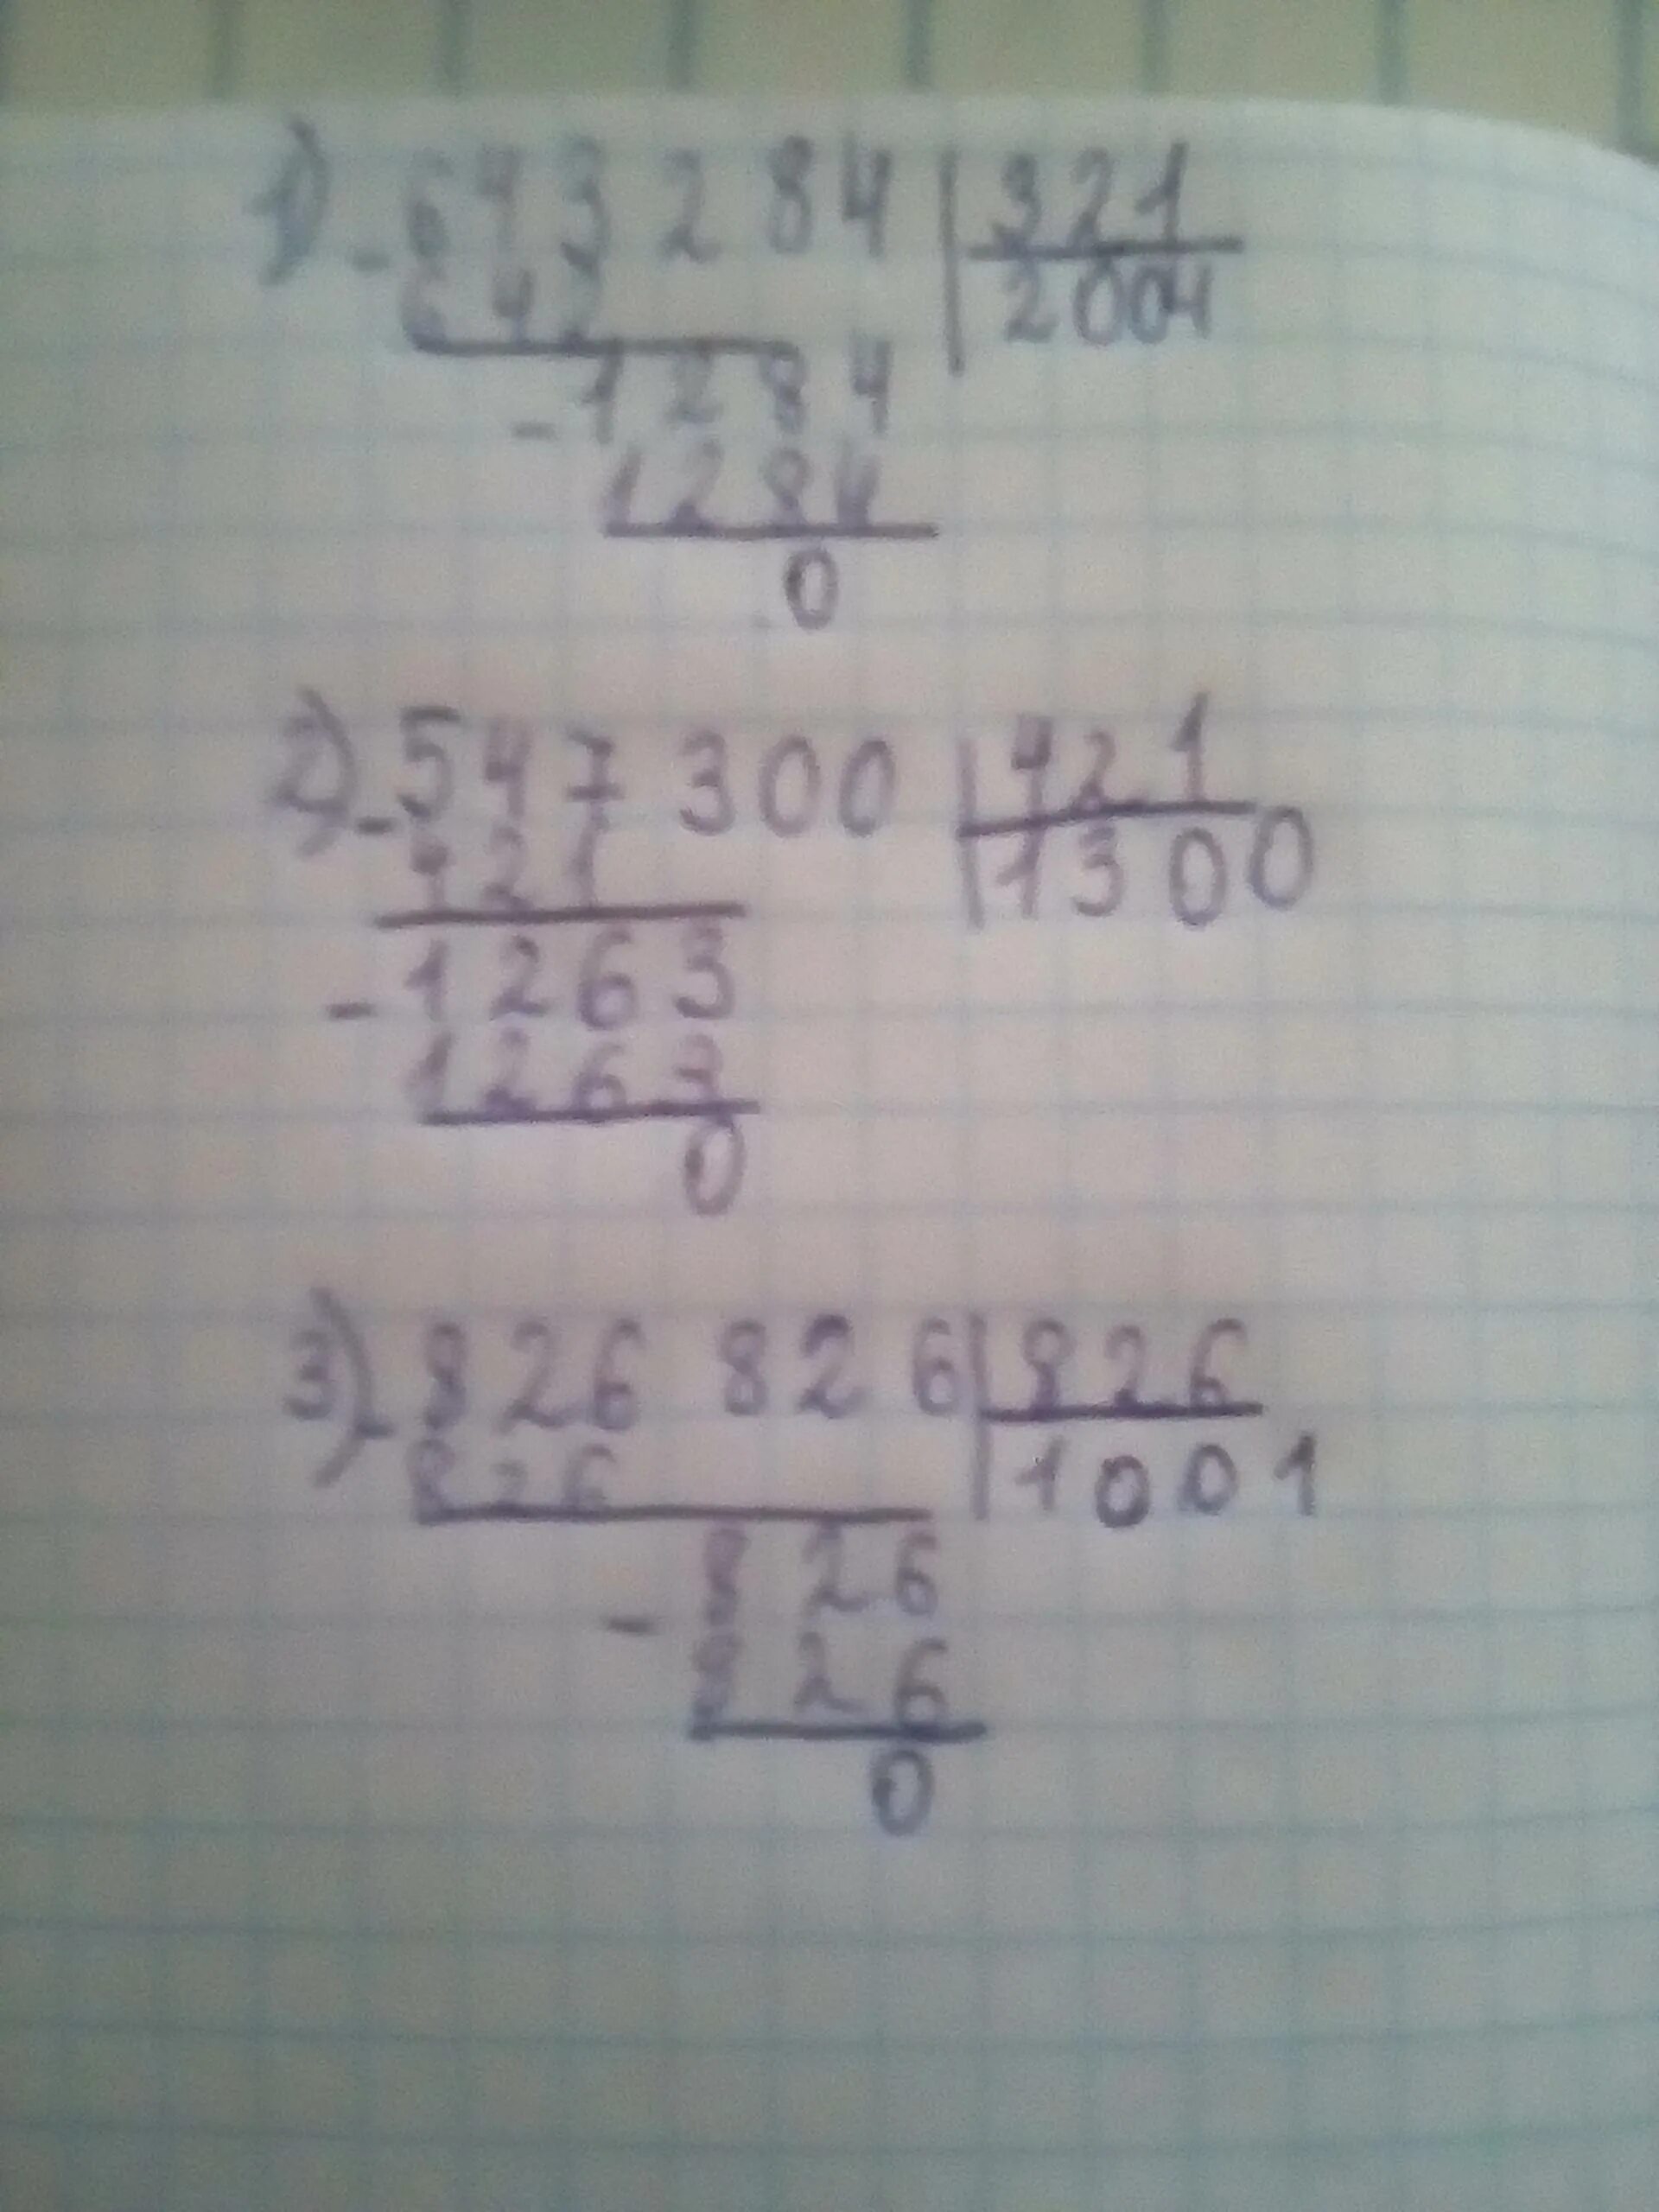 1) - 643 284 | 321
642 | 2004
- 1284
1284
0
2) - 547 300 | 421
421 | 1300
- 1263
1263
0
3) - 826 826 | 826
826 | 1001
- 826
826
0